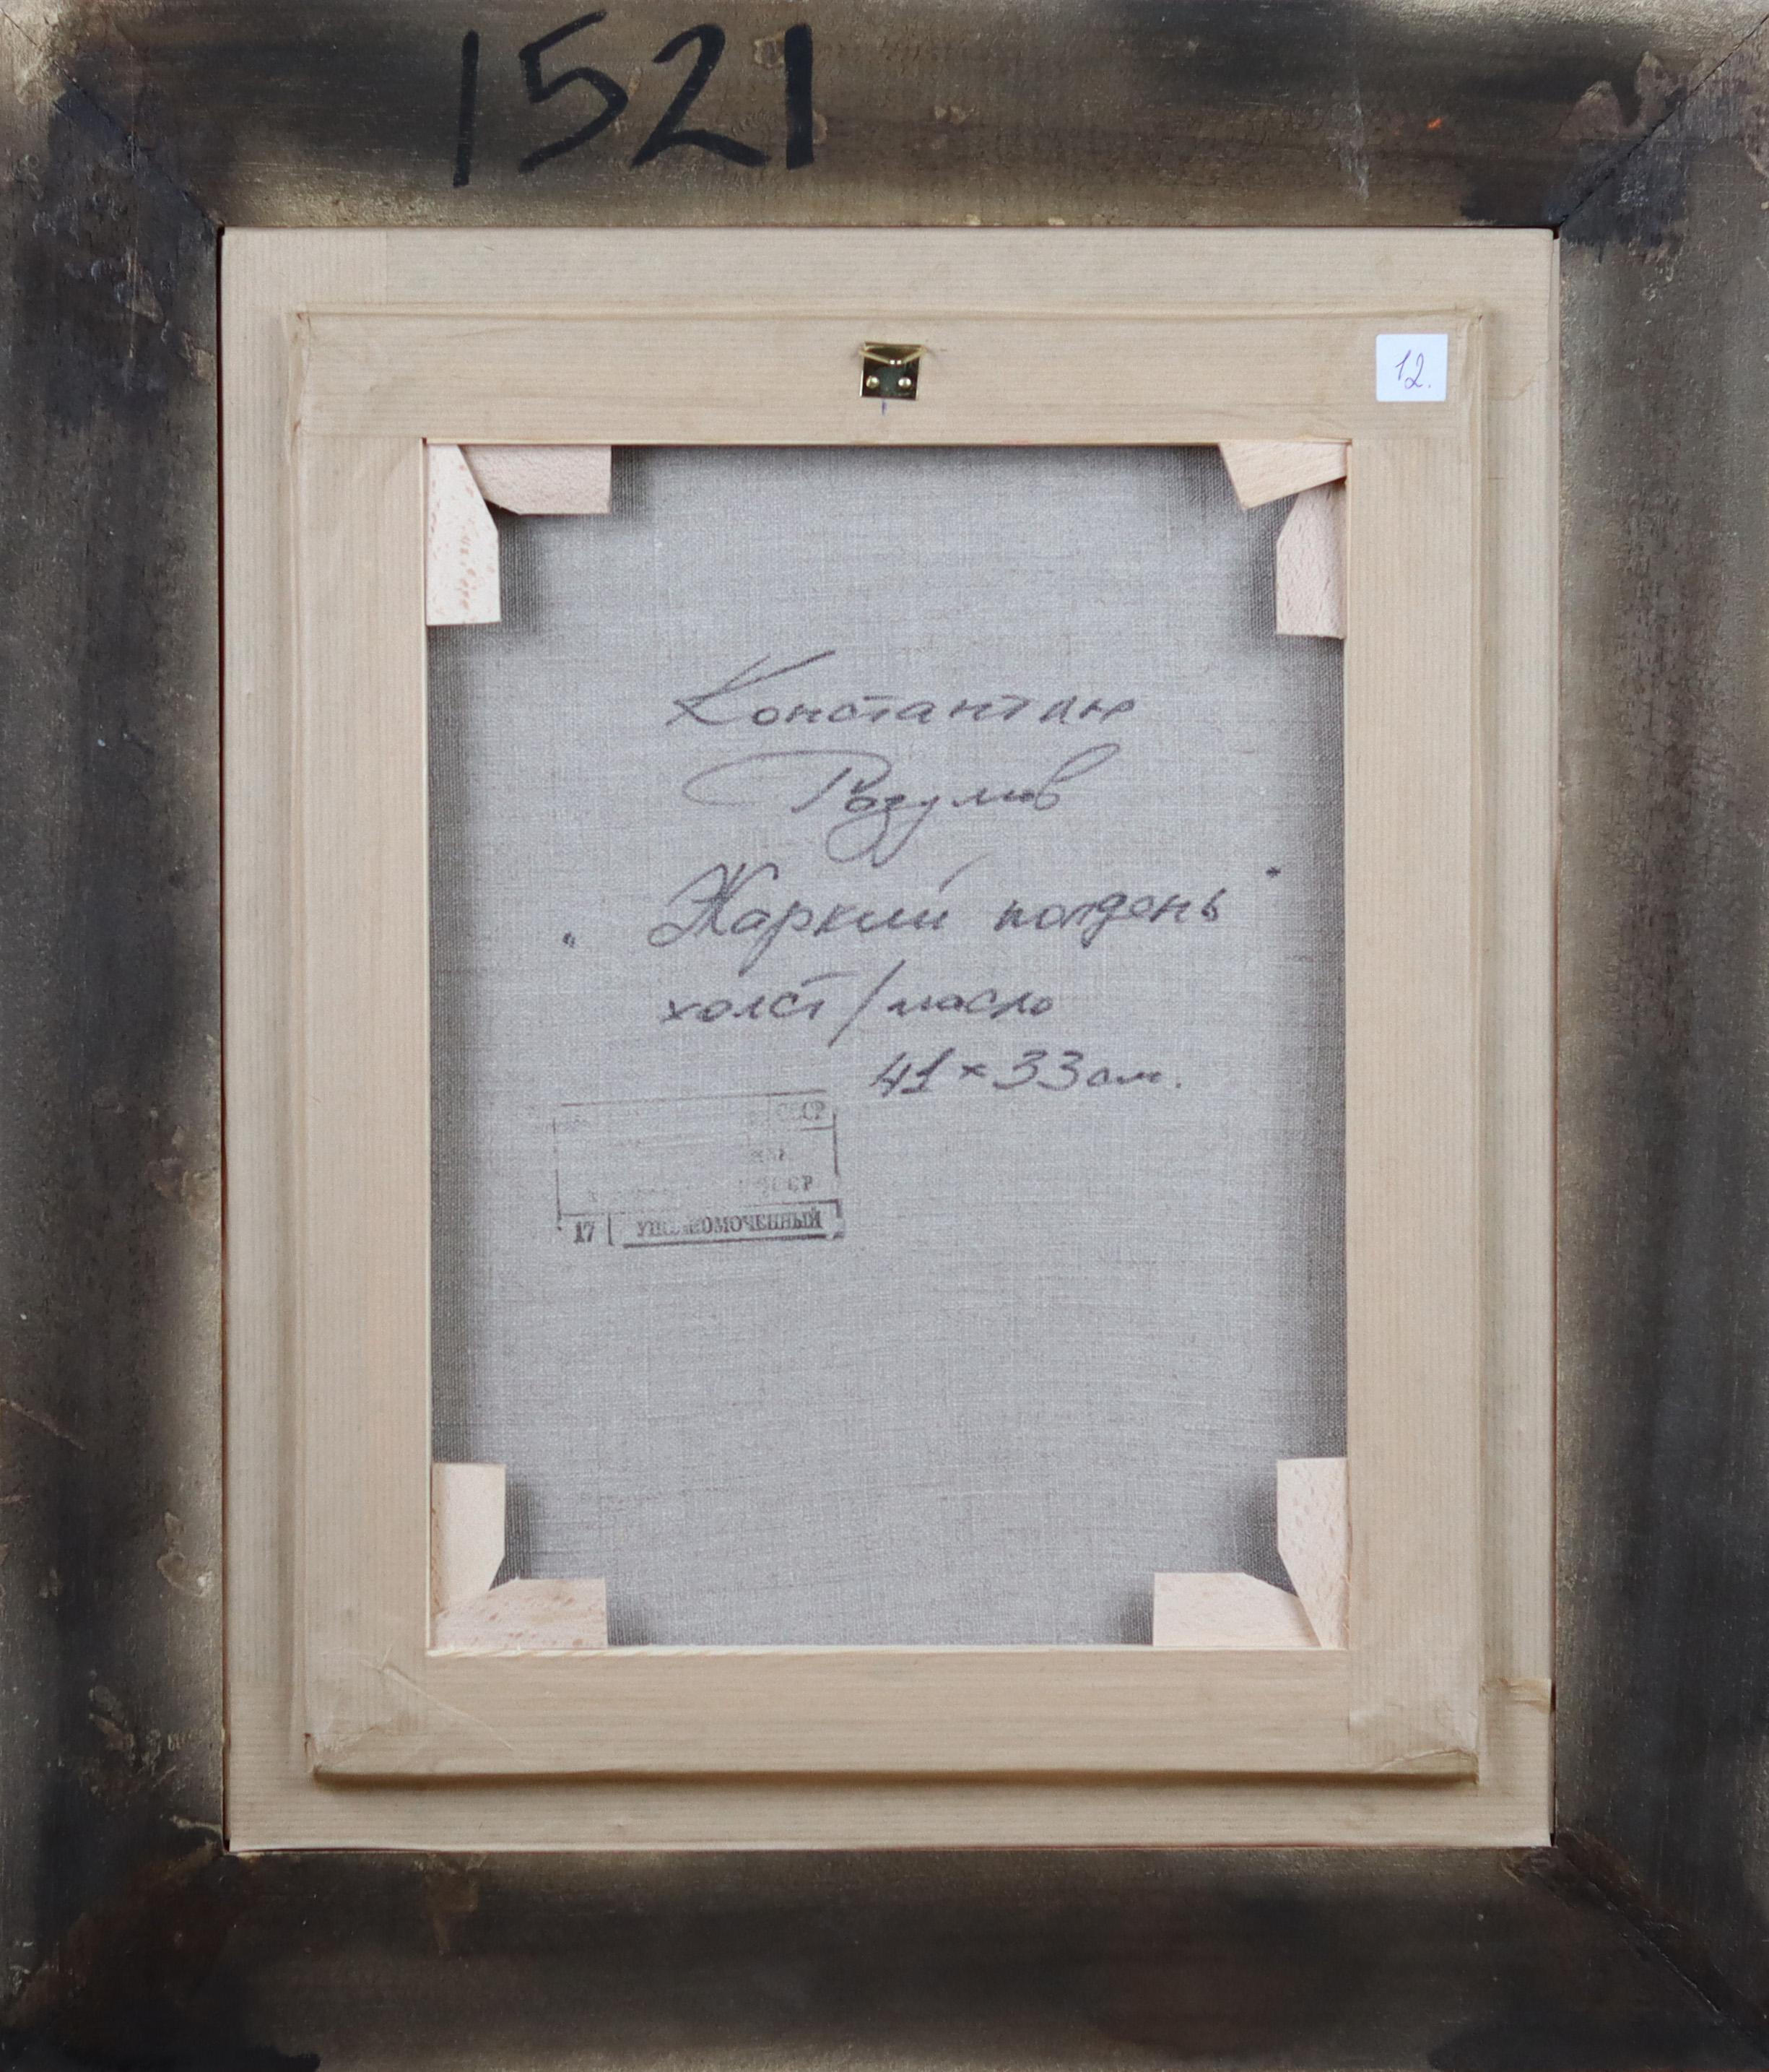 1521
12.
Константин
Разумов
„Жаркий полдень"
холст/масло
41×33 см.
СССР
17 УПОЛНОМОЧЕННЫЙ